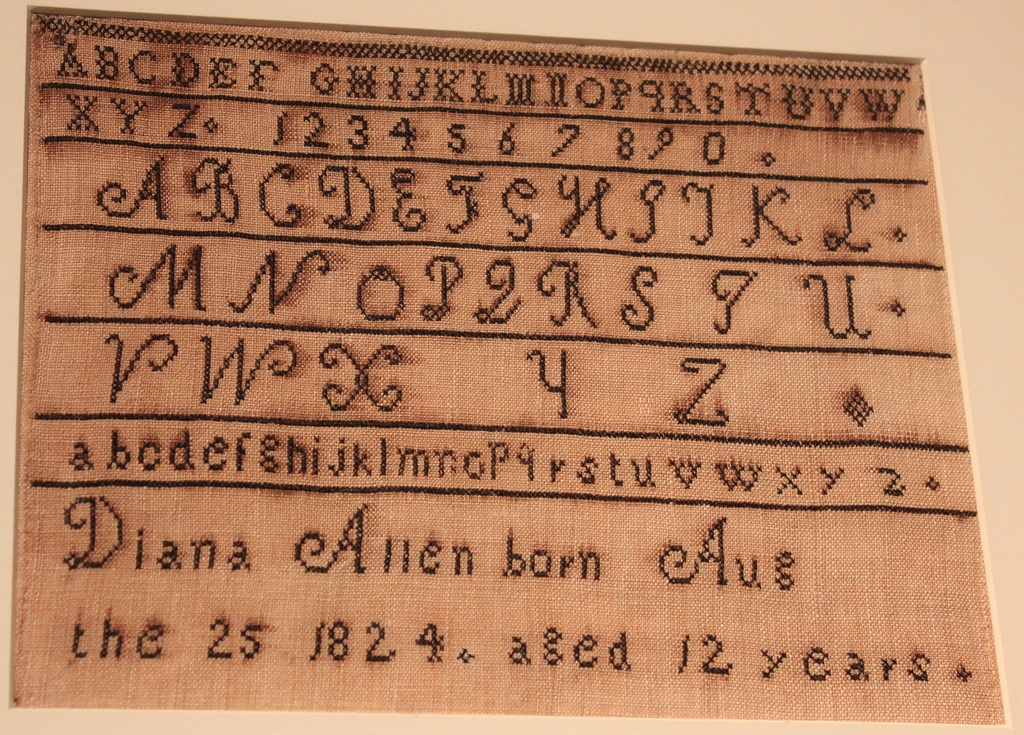 A B C D E F G H I J K L M N O P Q R S T U V W
X Y Z 1 2 3 4 5 6 7 8 9 0
A B C D E F G H I J K L
M N O P Q R S T U
V W X Y Z
a b c d e f g h i j k l m n o p q r s t u v w x y z
Diana Allen born Aug
the 25 1824. aged 12 years.